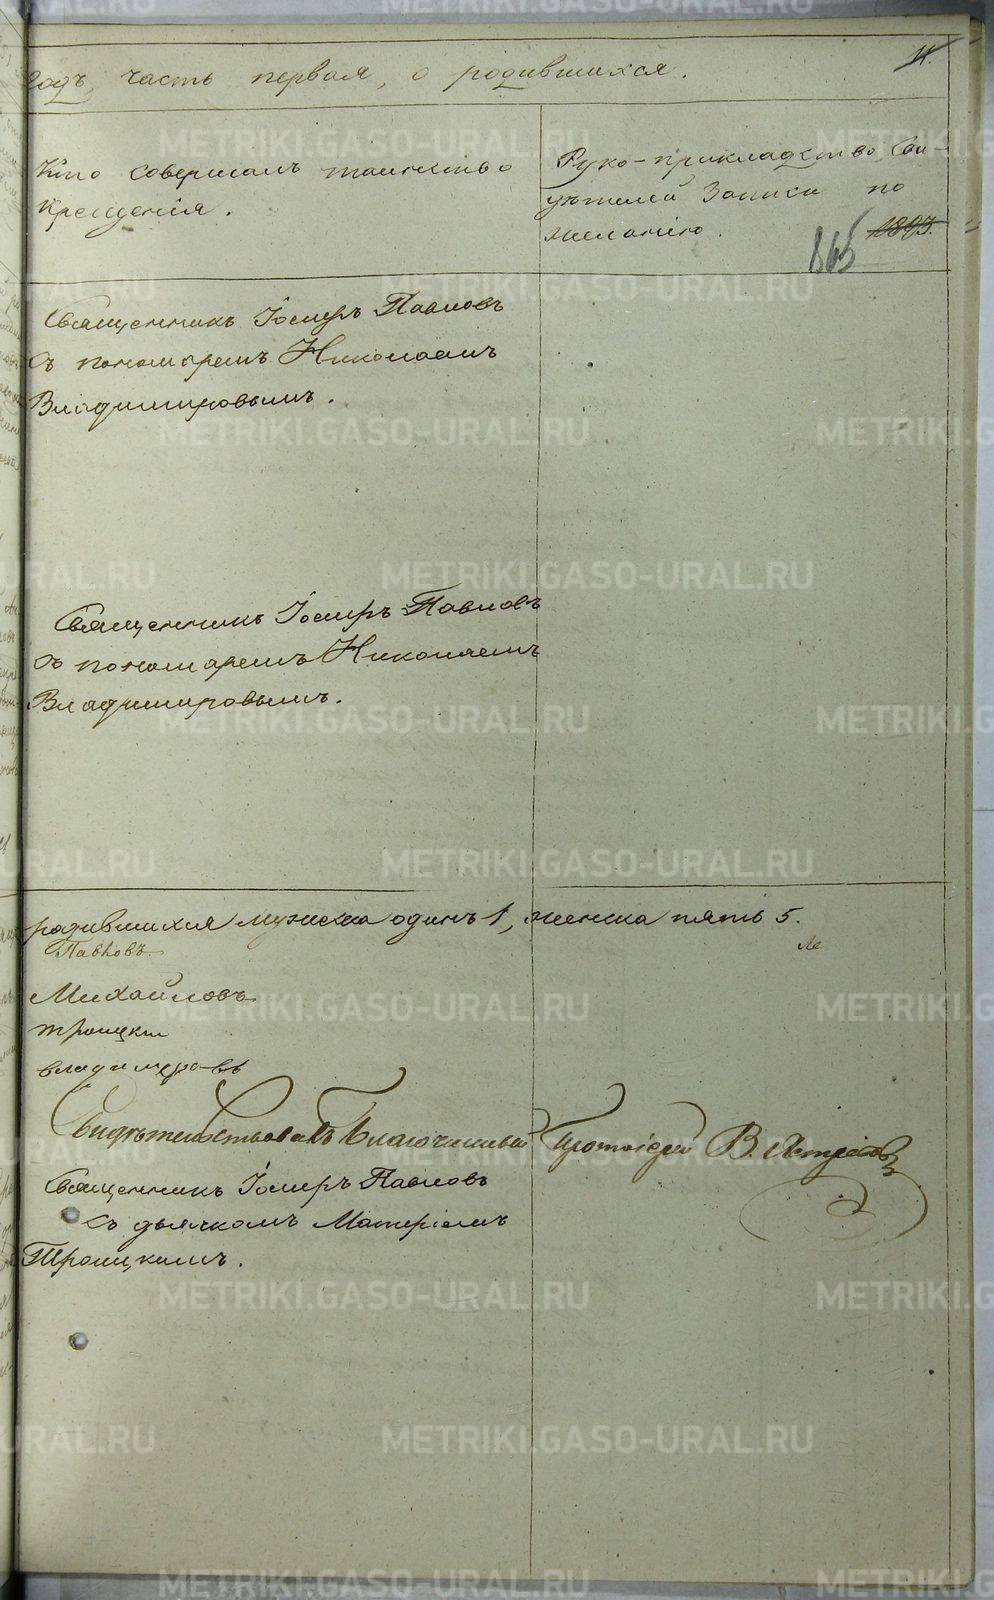 годъ, часть первая, о родившихся.
11.
Кто совершалъ таинство
крещенія.
Руко-прикладство сви-
дѣтелей записи по
желанію.
865 1893.
Священникъ Іосифъ Павловъ
съ пономаремъ Николаемъ
Владимировымъ.
Священникъ Іосифъ Павловъ
съ пономаремъ Николаемъ
Владимировымъ.
родившихся мужеска одинъ 1, женска пять 5.
Павловъ
Михайловъ
Троицкій
Владимировъ
Свидѣтельствовалъ Благочинный Протоіерей В.
Священникъ Іосифъ Павловъ
съ дьячкомъ
Троицкимъ.
METRIKI.GASO-URAL.RU